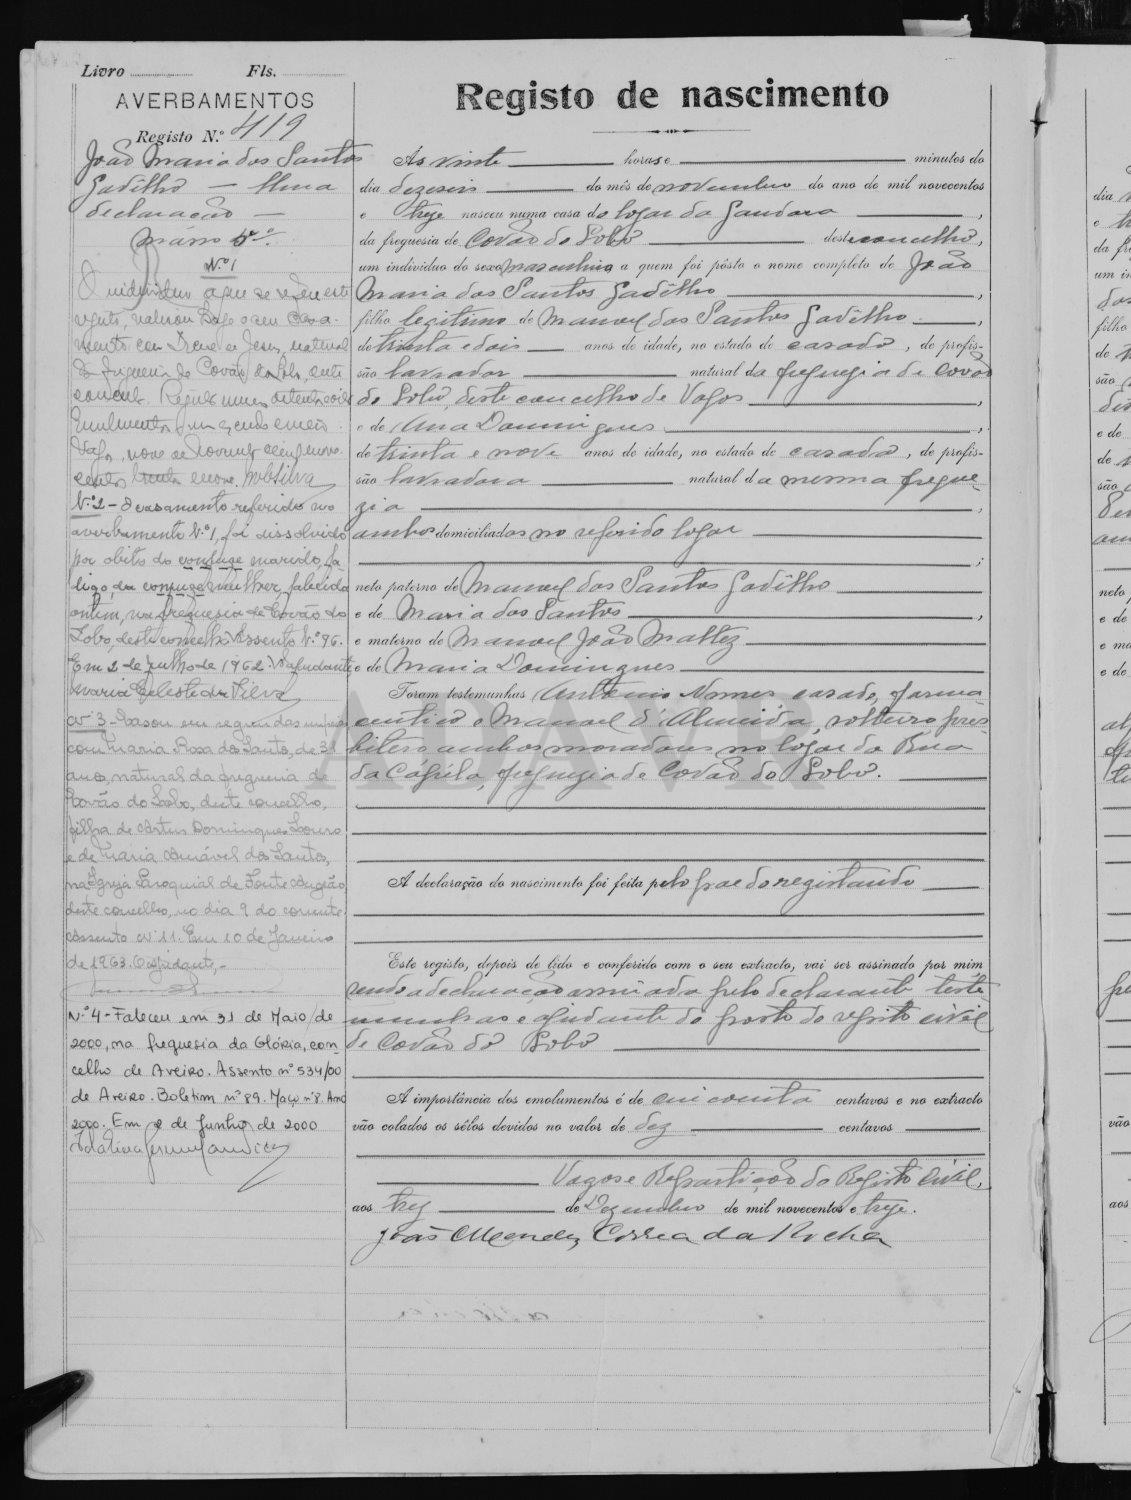 Livro Fls.
AVERBAMENTOS
Registo N.º 419
João Maria dos Santos
Gadêlho — Uma
declaração —
maço 5º
N.º 1
O individuo a que se refere este
registo, realizou hoje o seu casa-
mento com Irene de Jesus, natural
da freguesia de Covão do Lobo, deste
concelho.
Emolumentos um escudo e meio.
Vagos, nove de
centos trinta e nove.
N.º 2 - O casamento referido no
averbamento N.º 1, foi dissolvido
por obito do conjuge marido, fa-
ligo, da conjuge mulher, falecida
ontem, na freguesia de Covão do
Lobo, deste concelho. Assento N.º 96.
Em 2 de julho de 1962. O ajudante
Maria Celeste da Silva
Nº 3 - Casou em segundas nupcias
com Maria Rosa dos Santos, de 31
anos, natural da freguesia de
Covão do Lobo, deste concelho,
filha de Artur Domingues Louro
e de Maria Amável dos Santos,
na Igreja Paroquial de Fonte Angeão,
deste concelho, no dia 9 do corrente.
Assento nº 11. Em 10 de Janeiro
de 1963. O ajudante,-
N.º 4 - Faleceu em 31 de Maio de
2000, na freguesia da Glória, con-
celho de Aveiro. Assento nº 534/00
de Aveiro. Boletim nº 89. Maço nº 8. Ano
2000. Em 2 de Junho de 2000
Registo de nascimento
As vinte horas e minutos do
dia dezeseis do mês de novembro do ano de mil novecentos
e treze nasceu numa casa do logar da Gandara ,
da freguesia de Covão do Lobo deste concelho,
um individuo do sexo masculino a quem foi pôsto o nome completo de João
Maria dos Santos Gadêlho ,
filho legitimo de Manuel dos Santos Gadêlho ,
de trinta e dois anos de idade, no estado de casado, de profis-
são lavrador natural da freguezia de Covão
do Lobo, deste concelho de Vagos ,
e de Ana Domingues ,
de trinta e nove anos de idade, no estado de casada, de profis-
são lavradora natural da mesma fregue-
zia ,
ambos domiciliados no referido logar
;
neto paterno de Manuel dos Santos Gadêlho
e de Maria dos Santos ,
e materno de Manuel João Maltez
e de Maria Domingues
Foram testemunhas Antonio Nunes casado, farma-
ceutico e Manuel d'Almeida, solteiro pres-
bitero ambos moradores no logar da Rua
da Capéla, freguezia de Covão do Lobo.
A declaração do nascimento foi feita pelo pae do registando
Este registo, depois de lido e conferido com o seu extracto, vai ser assinado por mim
sendo a declaração assinada pelo declarante teste-
munhas e ajudante do posto do registo civil
de Covão do Lobo
A importância dos emolumentos é de cincoenta centavos e no extracto
vão colados os sêlos devidos no valor de dez centavos
Vagos e Repartição do Registo Civil,
aos trez de Dezembro de mil novecentos e treze.
João Mendes Correa da Rocha
ADAVR